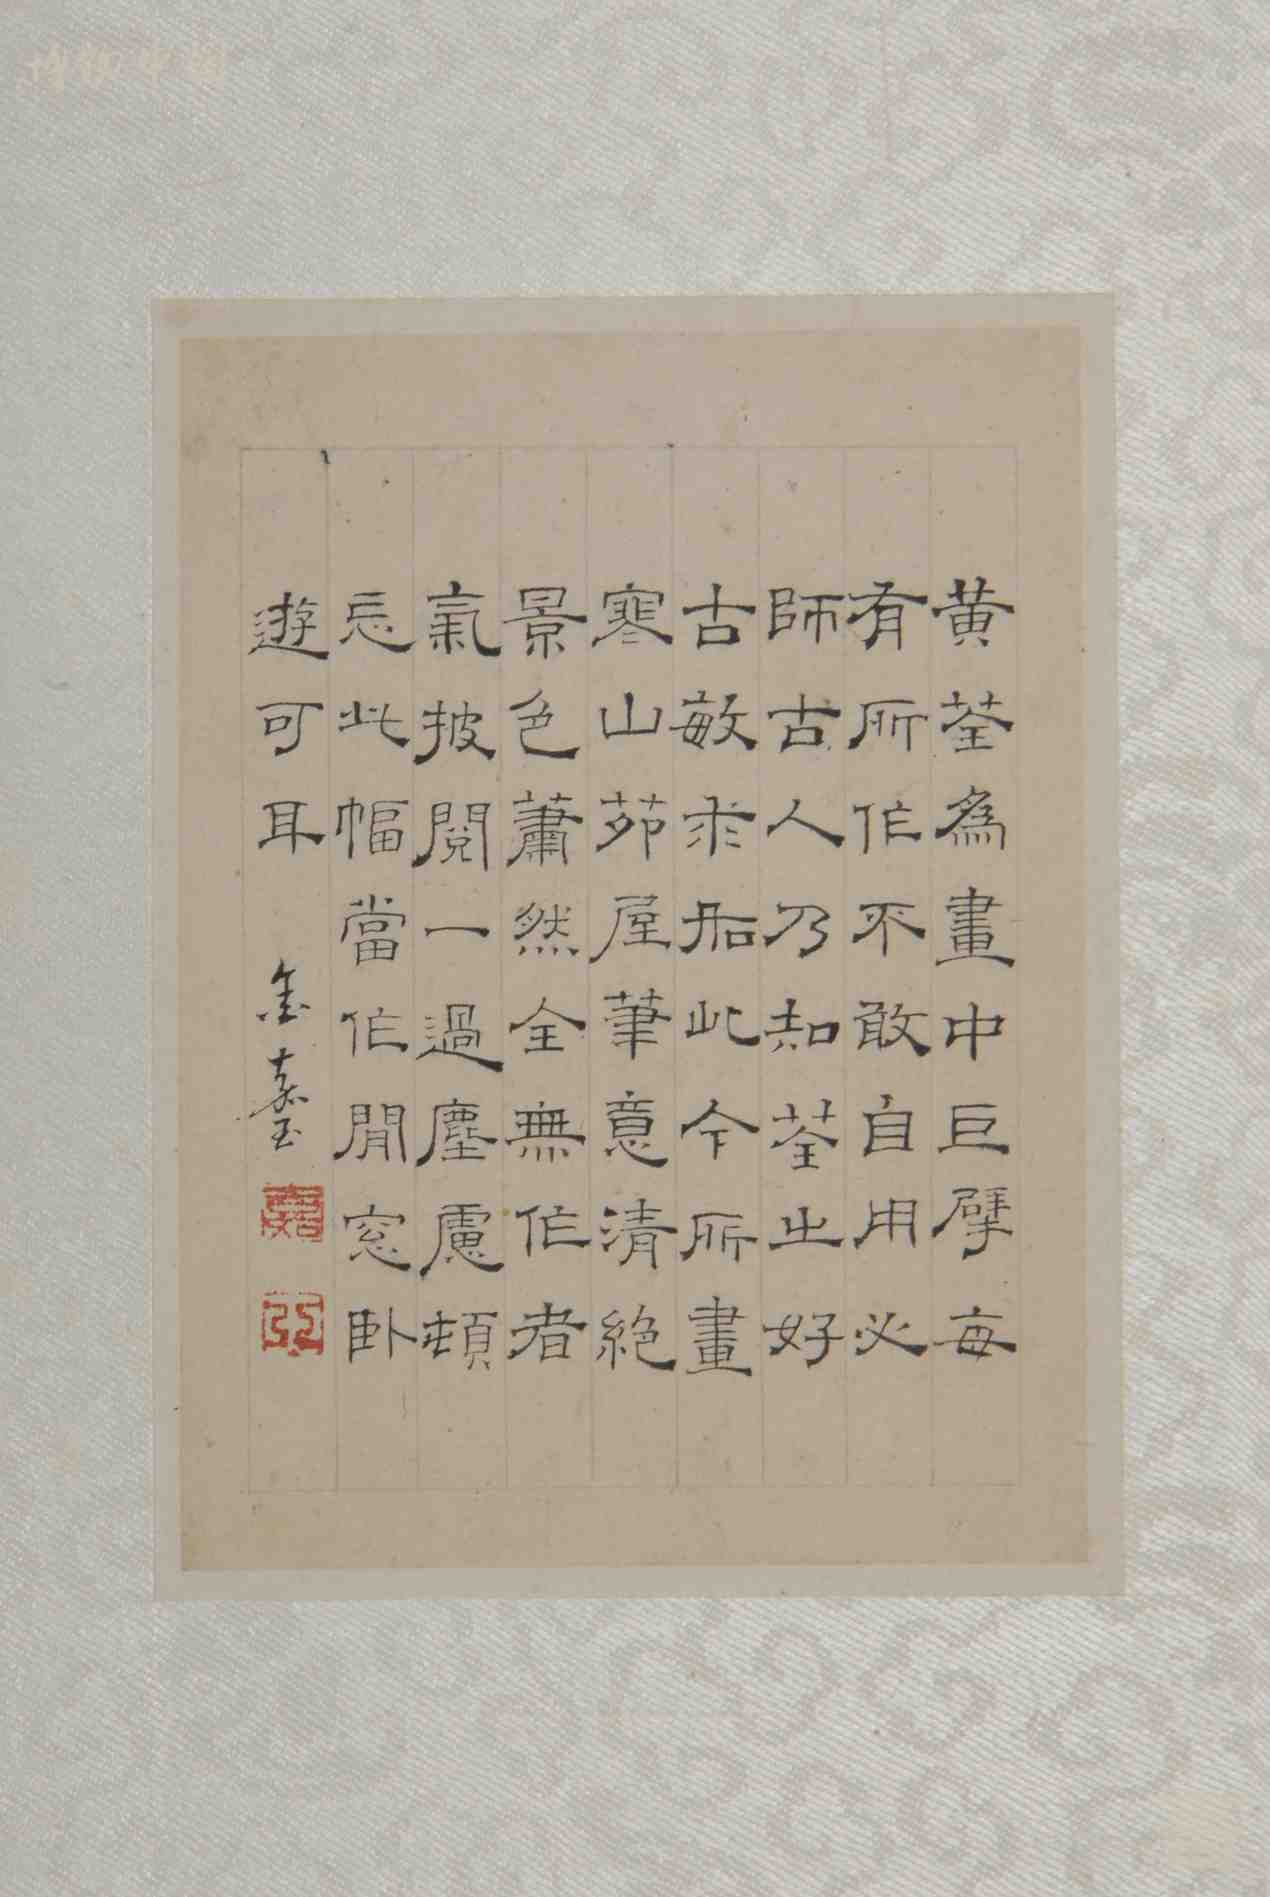 黄荃為畫中巨擘每
有所作不敢自用必
師古人乃知荃之好
古敏求如此今所畫
寒山茆屋筆意清絶
景色蕭然全無作者
氣披閲一過塵慮頓
忘此幅當作閒窓卧
遊可耳
金嘉玉
博観中国